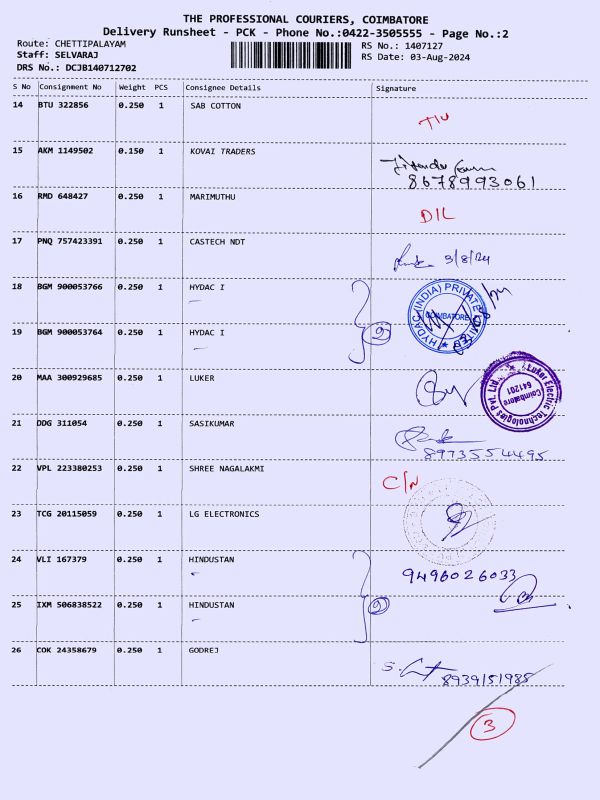 THE PROFESSIONAL COURIERS, COIMBATORE
Delivery Runsheet - PCK - Phone No.:0422-3505555 - Page No.:2
Route: CHETTIPALAYAM
Staff: SELVARAJ
DRS No.: DCJB140712702
RS No.: 1407127
RS Date: 03-Aug-2024
S No Consignment No Weight PCS Consignee Details Signature
14 BTU 322856 0.250 1 SAB COTTON
15 AKM 1149502 0.150 1 KOVAI TRADERS
8678993061
16 RMD 648427 0.250 1 MARIMUTHU
D/L
17 PNQ 757423391 0.250 1 CASTECH NDT
3/8/24
18 BGM 900053766 0.250 1 HYDAC I
HYDAC (INDIA) PRIVATE LIMITED
COIMBATORE
19 BGM 900053764 0.250 1 HYDAC I
2
20 MAA 300929685 0.250 1 LUKER
Luker Electric Technologies Pvt. Ltd.
Coimbatore
641201
21 DDG 311054 0.250 1 SASIKUMAR
8973554495
22 VPL 223380253 0.250 1 SHREE NAGALAKMI
C/N
23 TCG 20115059 0.250 1 LG ELECTRONICS
24 VLI 167379 0.250 1 HINDUSTAN
9496026033
25 IXM 506838522 0.250 1 HINDUSTAN
2
26 COK 24358679 0.250 1 GODREJ
8939151985
3